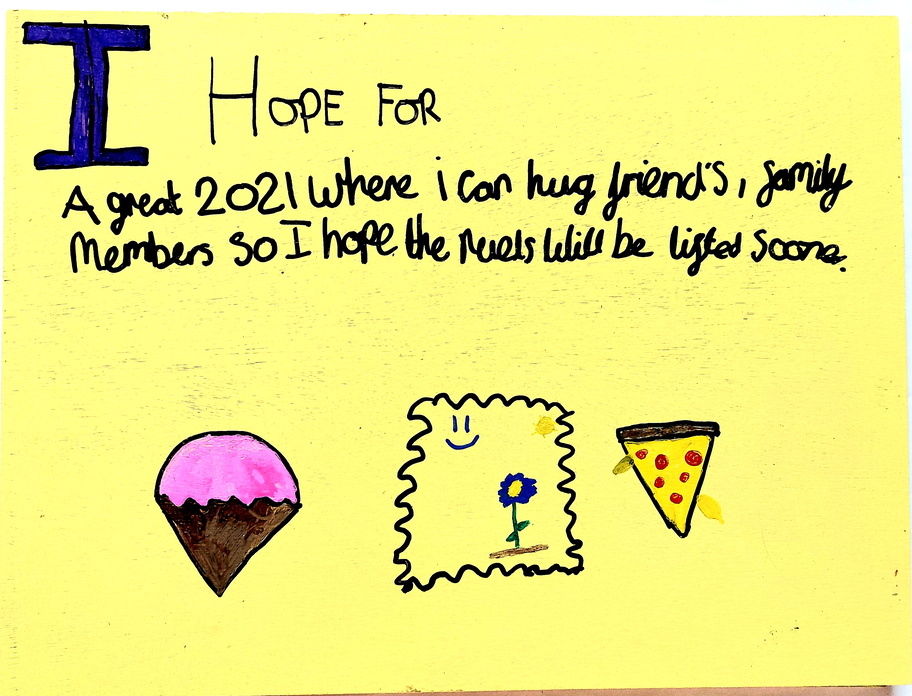 I HOPE FOR
A great 2021 where i can hug friend's, family
Members so I hope the ruels will be lifted soone.